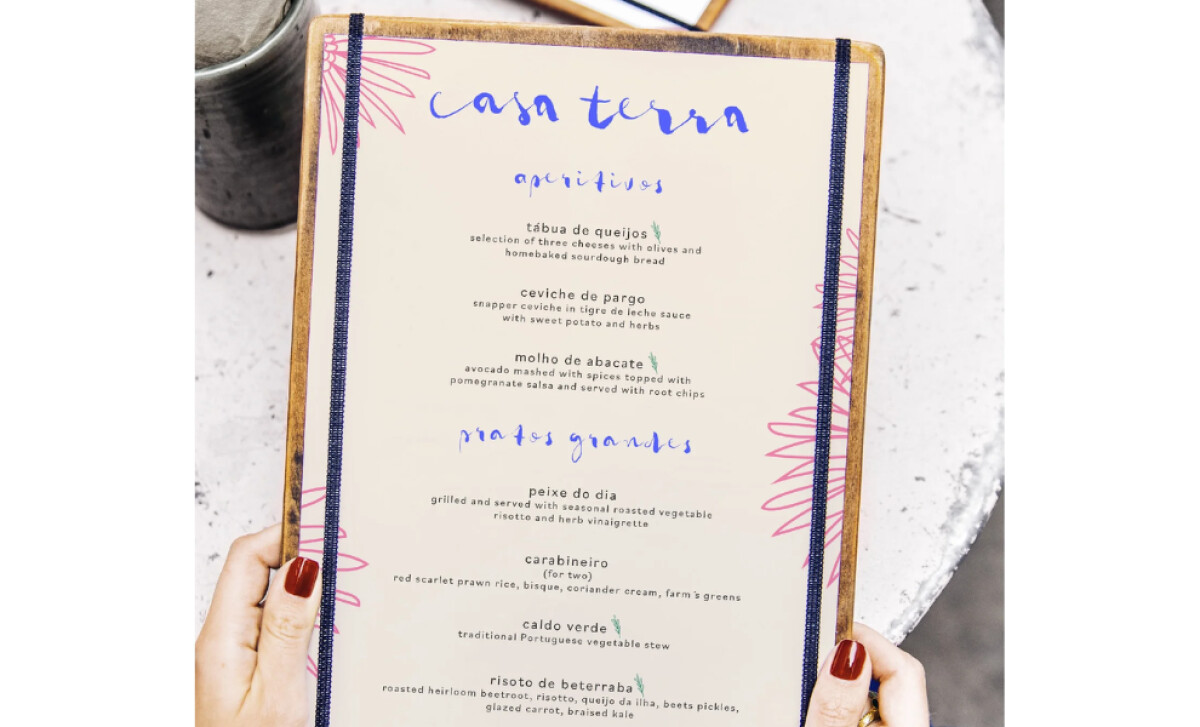 casa terra
aperitivos
tábua de queijos
selection of three cheeses with olives and
homebaked sourdough bread
ceviche de pargo
snapper ceviche in tigre de leche sauce
with sweet potato and herbs
molho de abacate
avocado mashed with spices topped with
pomegranate salsa and served with root chips
pratos grandes
peixe do dia
grilled and served with seasonal roasted vegetable
risotto and herb vinaigrette
carabineiro
(for two)
red scarlet prawn rice, bisque, coriander cream, farm's greens
caldo verde
traditional Portuguese vegetable stew
risoto de beterraba
roasted heirloom beetroot, risotto, queijo da ilha, beets pickles,
glazed carrot, braised kale